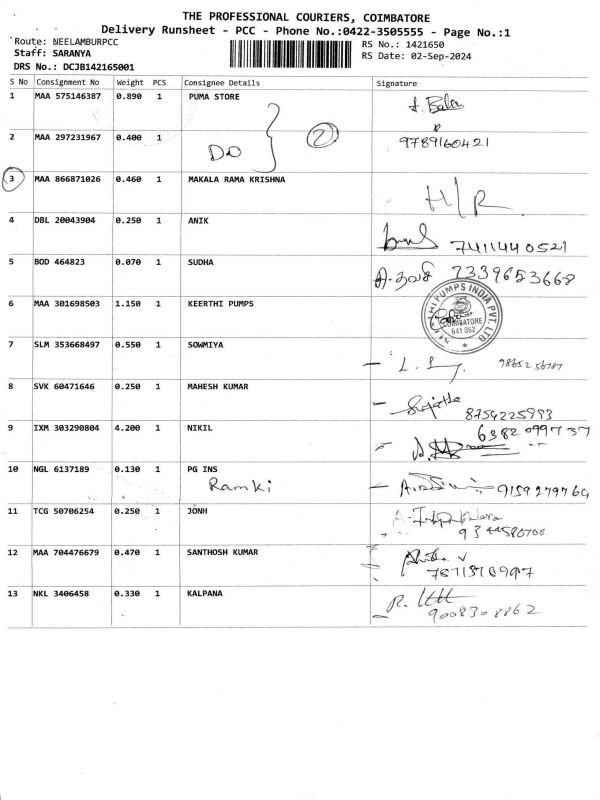 THE PROFESSIONAL COURIERS, COIMBATORE
Delivery Runsheet - PCC - Phone No.:0422-3505555 - Page No.:1
Route: NEELAMBURPCC
Staff: SARANYA
DRS No.: DCJB142165001
RS No.: 1421650
RS Date: 02-Sep-2024
S No Consignment No Weight PCS Consignee Details Signature
1 MAA 575146387 0.890 1 PUMA STORE
2 MAA 297231967 0.400 1 DO 2 9789160421
3 MAA 866871026 0.460 1 MAKALA RAMA KRISHNA H/R
4 DBL 20043904 0.250 1 ANIK 7411440521
5 BOD 464823 0.070 1 SUDHA 7339653668
6 MAA 301698503 1.150 1 KEERTHI PUMPS PUMPS INDIA PVT. LTD COIMBATORE 641 062
7 SLM 353668497 0.550 1 SOWMIYA
8 SVK 60471646 0.250 1 MAHESH KUMAR Sujatha 8754225993
9 IXM 303290804 4.200 1 NIKIL 6382099737
10 NGL 6137189 0.130 1 PG INS
Ramki 9159279764
11 TCG 50706254 0.250 1 JONH
12 MAA 704476679 0.470 1 SANTHOSH KUMAR
13 NKL 3406458 0.330 1 KALPANA 9008308862